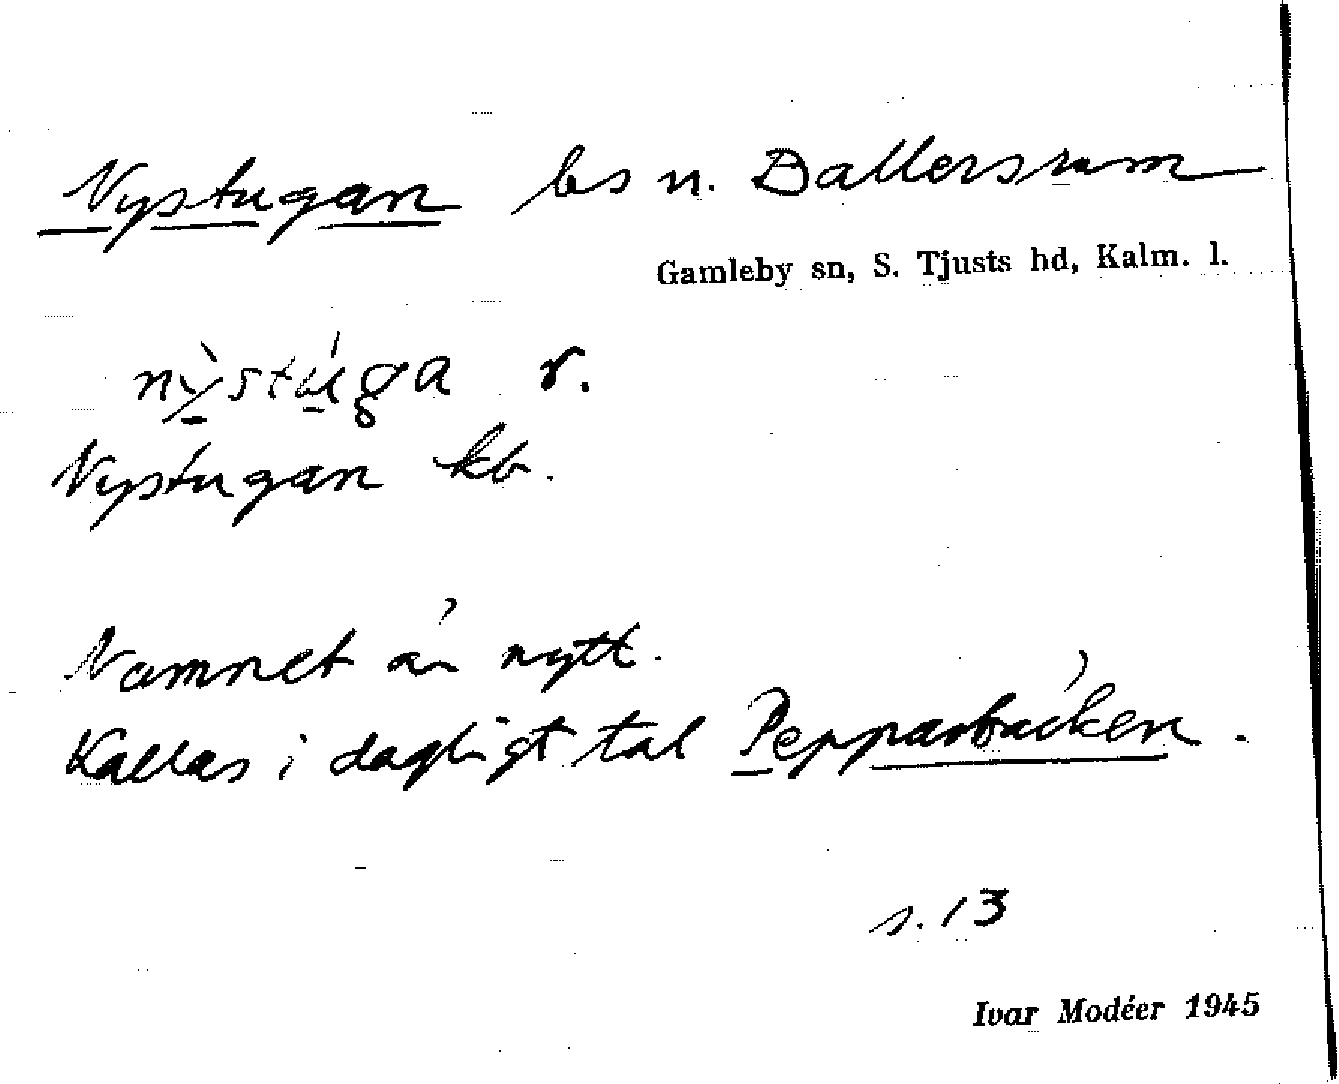 Nystugan bs u. Dallersrum
Gamleby sn, S. Tjusts hd, Kalm. l.
nỳstúga r.
Nystugan kb.
Namnet är nytt.
Kallas i dagligt tal Pepparbacken.
s. 13
Ivar Modéer 1945